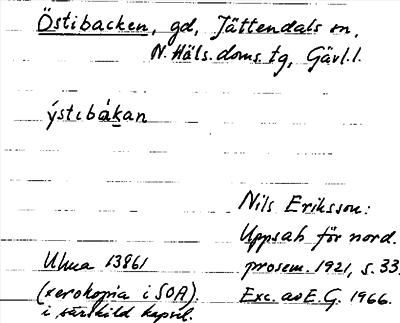 Östibacken, gd, Jättendals sn,
N. Häls. doms. tg, Gävl. l.
ýstibákan
Nils Eriksson:
Uppsats för nord.
Ulma 13861
prosem. 1921, s. 33.
(xerokopia i SOA)
i särskild kapsel.
Exc. av E.G. 1966.